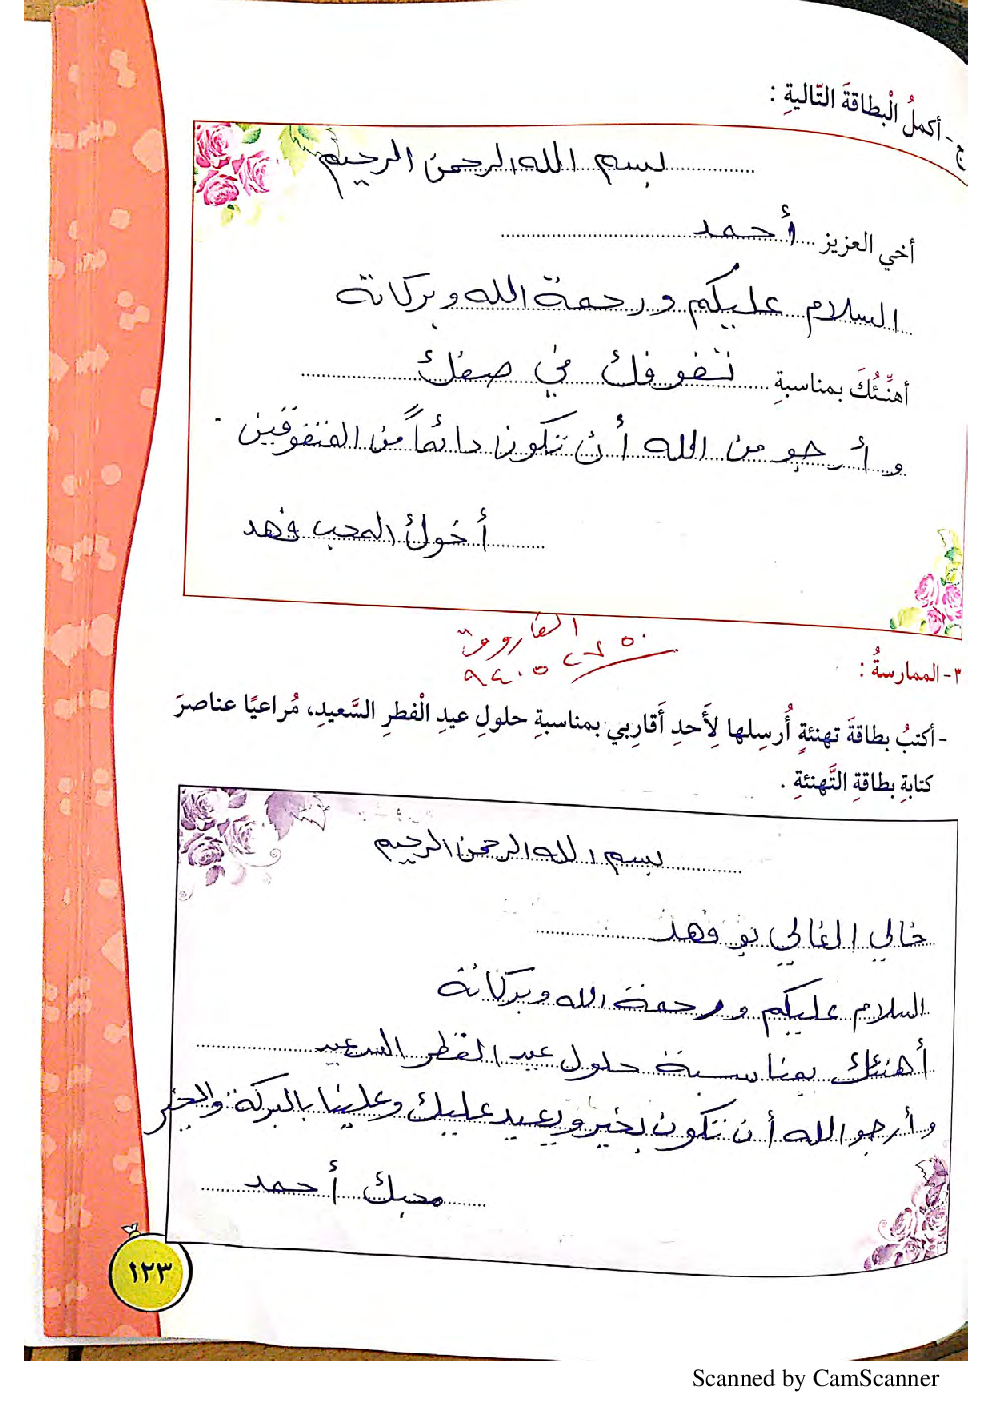 ج - أكملُ الْبطاقةَ التّاليةِ :
بسم الله الرحمن الرحيم
أخي العزيز أحمد
السلام عليكم ورحمة الله وبركاتة
أهنّئُكَ بمناسبةِ تفوقك في صفك
وأرجو من الله أن تكون دائماً من المتفوقين .
أخوك المحب فهد
الفاروق
٩٤٠٥٤٢٥٠
٣- الممارسةُ :
- أكتبُ بطاقةَ تهنئةٍ أُرسِلها لِأَحدِ أَقارِبي بمناسبةِ حلولِ عيدِ الْفطرِ السَّعيدِ، مُراعيًا عناصرَ
كتابةِ بطاقةِ التَّهنئةِ .
بسم الله الرحمن الرحيم
خالي الغالي بو فهد
السلام عليكم ورحمة الله وبركاتة
أهنئك بمناسبة حلول عيد الفطر السعيد
وأرجو الله أن تكون بخير ويعيد عليك وعلينا بالبركة والخير
محبك أحمد
١٢٣
Scanned by CamScanner